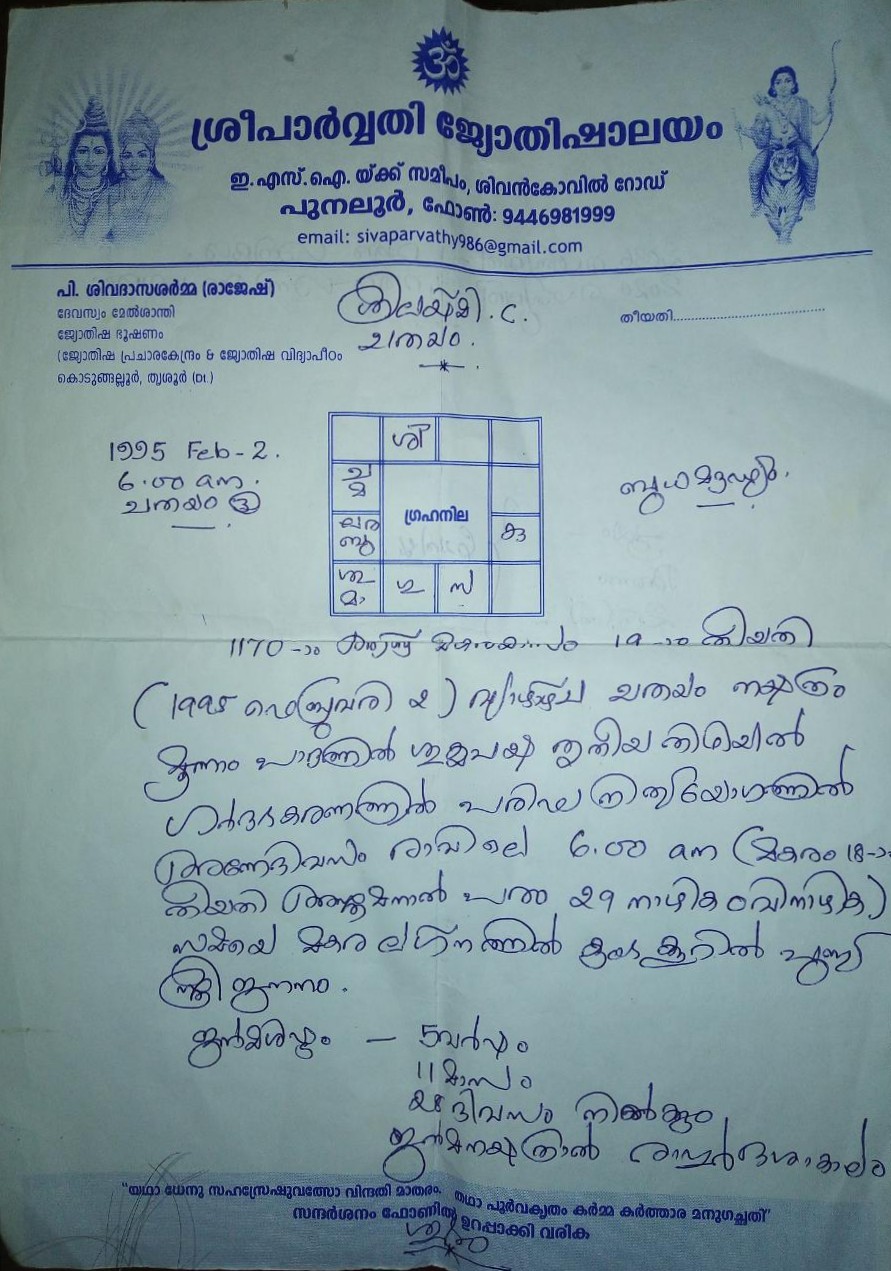 ॐ
ശ്രീപാർവ്വതി ജ്യോതിഷാലയം
ഇ.എസ്.ഐ. യ്ക്ക് സമീപം, ശിവൻകോവിൽ റോഡ്
പുനലൂർ, ഫോൺ: 9446981999
email: sivaparvathy986@gmail.com
പി. ശിവദാസശർമ്മ (രാജേഷ്)
ദേവസ്വം മേൽശാന്തി
ജ്യോതിഷ ഭൂഷണം
(ജ്യോതിഷ പ്രചാരകേന്ദ്രം & ജ്യോതിഷ വിദ്യാപീഠം
കൊടുങ്ങല്ലൂർ, തൃശൂർ (Dt.)
ശ്രീലക്ഷ്മി . C .
ചതയം .
തീയതി.......................................
1995 Feb - 2 .
6.00 am .
ചതയം
ശി
ച
മ
ഗ്രഹനില
ബു
കു
ശു
മാ
ഗു
സ
1170 -ാം മകരമാസം 19 -ാം തീയതി
(1995 ഫെബ്രുവരി 2 ) വ്യാഴാഴ്ച ചതയം നക്ഷത്രം
മൂന്നാം പാദത്തിൽ ശുക്ലപക്ഷ തൃതീയ തിഥിയിൽ
കരണത്തിൽ പരിഘ നിത്യയോഗത്തിൽ
അന്നേദിവസം രാവിലെ 6.00 am (മകരം 18-ാം
തീയതി അസ്തമനാൽ പരം 29 നാഴിക 0 വിനാഴിക )
സമയെ മകര ലഗ്നത്തിൽ കുംഭ കൂറിൽ
സ്ത്രീ ജനനം .
ജന്മശിഷ്ടം — 5 വർഷം
11 മാസം
28 ദിവസം നിൽക്കും
ജന്മനക്ഷത്രാൽ രാഹുർദശാകാലം
"യഥാ ധേനു സഹസ്രേഷുവത്സോ വിന്ദതി മാതരം, യഥാ പൂർവകൃതം കർമ്മ കർത്താര മനുഗച്ഛതി"
സന്ദർശനം ഫോണിൽ ഉറപ്പാക്കി വരിക
ശുഭം